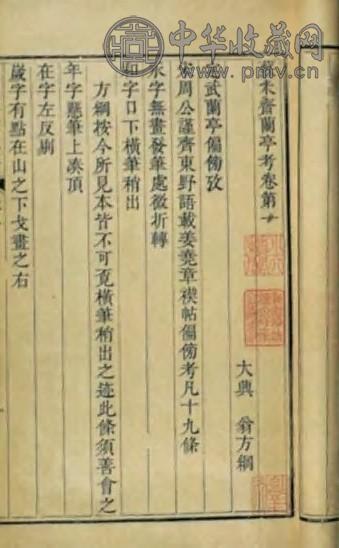 中华收藏网
米齋蘭亭考卷第
大興 翁方綱
定武蘭亭偏傍攷
宋周公謹齊東野語載姜堯章禊帖偏傍考凡十九條
永字無畫發筆處微折轉
和字口下橫筆稍出
方綱按今所見本皆不可覓橫筆稍出之迹此條須善會之
年字懸筆上湊頂
在字左反剔
歲字有點在山之下戈畫之右